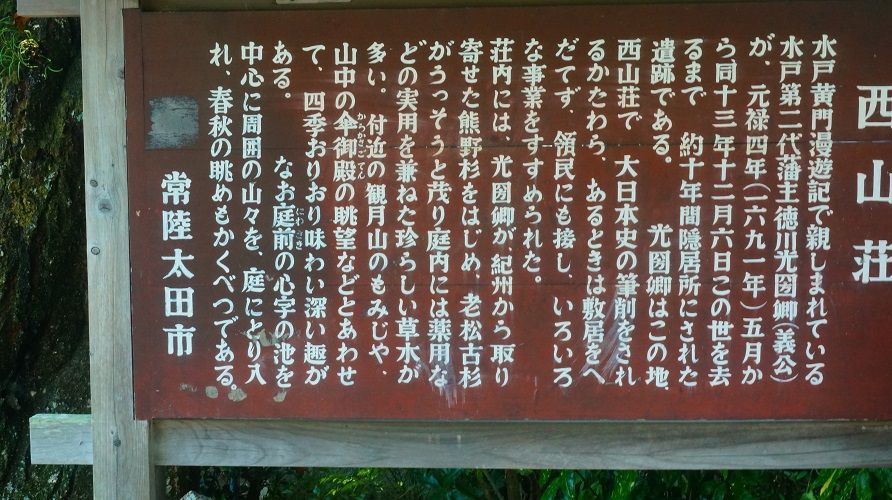 西山荘
水戸黄門漫遊記で親しまれている
水戸第二代藩主徳川光圀卿(義公)
が、元禄四年(一六九一年)五月か
ら同十三年十二月六日この世を去
るまで 約十年間隠居所にされた
遺跡である。 光圀卿はこの地、
西山荘で 大日本史の筆削をされ
るかたわら、あるときは敷居をへ
だてず、領民にも接し、いろいろ
な事業をすすめられた。
荘内には、光圀卿が、紀州から取り
寄せた熊野杉をはじめ、老松古杉
がうっそうと茂り庭内には薬用な
どの実用を兼ねた珍らしい草木が
多い。付近の観月山のもみじや、
山中の傘御殿の眺望などとあわせ
からかさごてん
て、四季おりおり味わい深い趣が
ある。 なお庭前の心字の池を
にわさき
中心に周囲の山々を、庭にとり入
れ、春秋の眺めもかくべつである。
常陸太田市